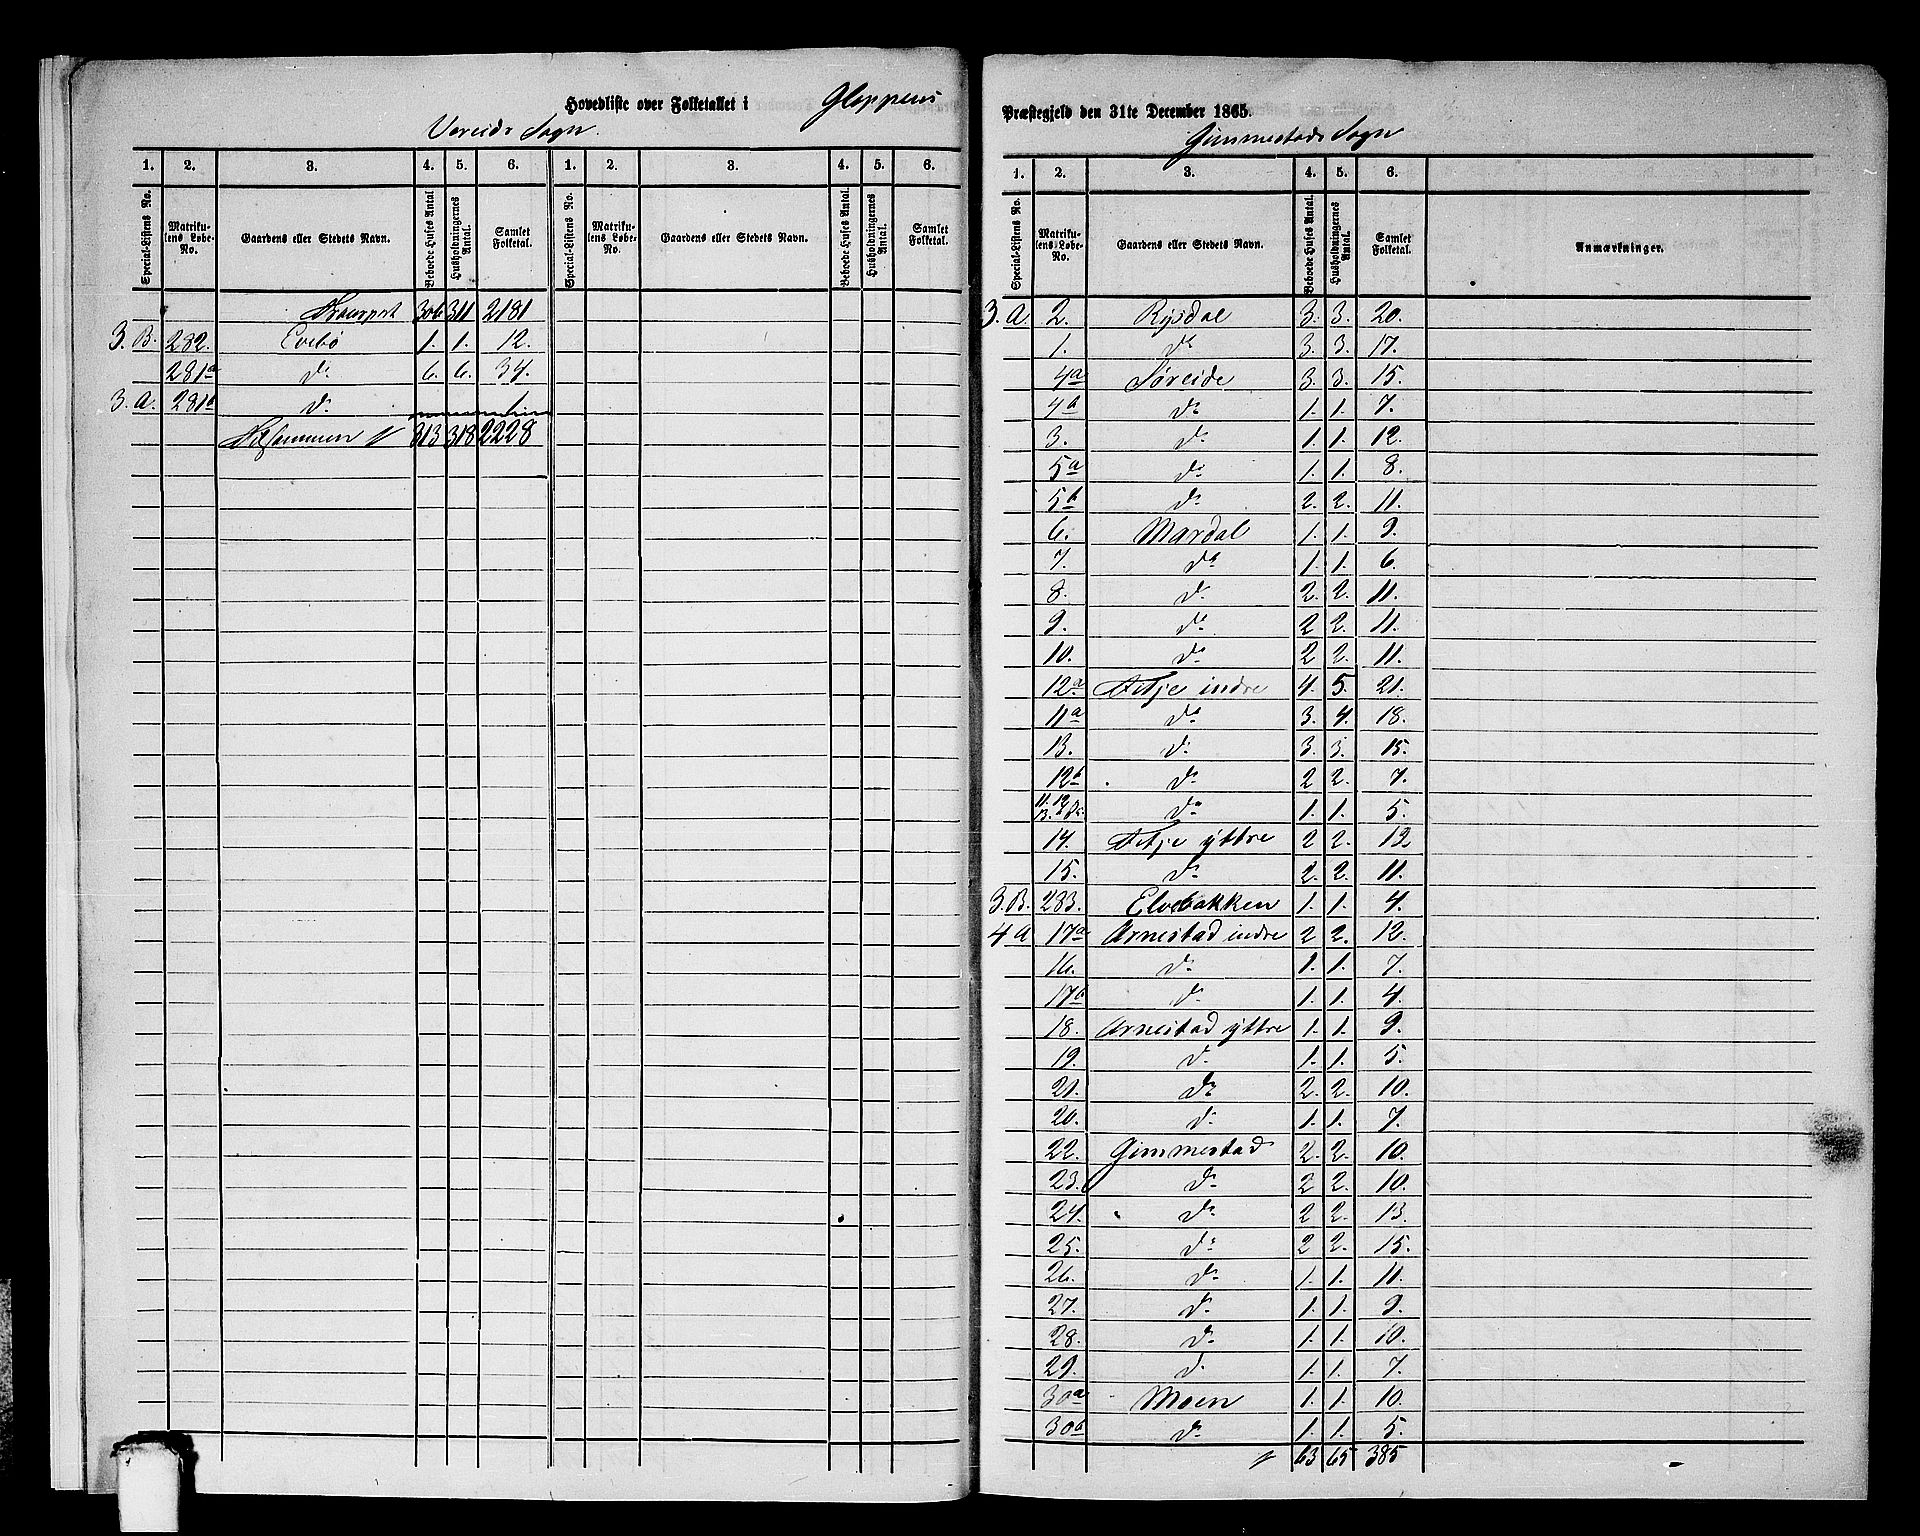 Hovedliste over Folketallet i Gloppens
Vereids Sogn
1. 2. 3. 4. 5. 6. 1. 2. 3. 4. 5. 6.
Special-Listens No. Matrikulens Løbe-No. Gaardens eller Stedets Navn. Beboede Huses Antal Husholdningernes Antal. Samlet Folketal. Special-Listens No. Matrikulens Løbe-No. Gaardens eller Stedets Navn. Beboede Huses Antal. Husholdningernes Antal. Samlet Folketal.
Transport 306 311 2181
3. B. 282. Evebø 1. 1. 12.
281a do 6. 6. 34.
3. A. 281b do 1
Tilsammen 313 318 2228
Præstegjeld den 31te December 1865.
Gimmestads Sogn
1. 2. 3. 4. 5. 6.
Special-Listens No. Matrikulens Løbe-No. Gaardens eller Stedets Navn. Beboede Huses Antal. Husholdningernes Antal. Samlet Folketal. Anmærkninger.
3. A. 2. Rysdal 3. 3. 20.
1. do 3. 3. 17.
4a Søreide 3. 3. 15.
4b do 1. 1. 7.
3. do 1. 1. 12.
5a do 1. 1. 8.
5b do 2. 2. 11.
6. Mardal 1. 1. 9.
7. do 1. 1. 6.
8. do 2. 2. 11.
9. do 2 2. 11.
10. do 2 2. 11.
12a Fitje indre 4. 5. 21.
11a do 3. 4. 18.
13. do 3. 3. 15.
12b do 2 2. 7.
11. 12
13. do 1. 1. 5.
14. Fitje yttre 2 2. 12
15. do 2. 2. 11.
3. B. 283. Elvebakken 1. 1. 4.
4 A 17a Arnestad indre 2 2. 12.
16. do 1. 1. 7.
17b do 1. 1. 4.
18. Arnestad yttre 1. 1. 9.
19. do 1. 1. 5.
21. do 2. 2. 10.
20. do 1. 1. 7.
22. Gimmestad 2. 2. 10.
23. do 2 2. 10.
24. do 2 2. 13.
25. do 2 2. 15.
26. do 1. 1. 11.
27. do 1. 1. 9.
28. do 1. 1. 10.
29. do 1. 1. 7.
30a Moen 1. 1. 10.
30b do 1. 1. 5.
63 65 385